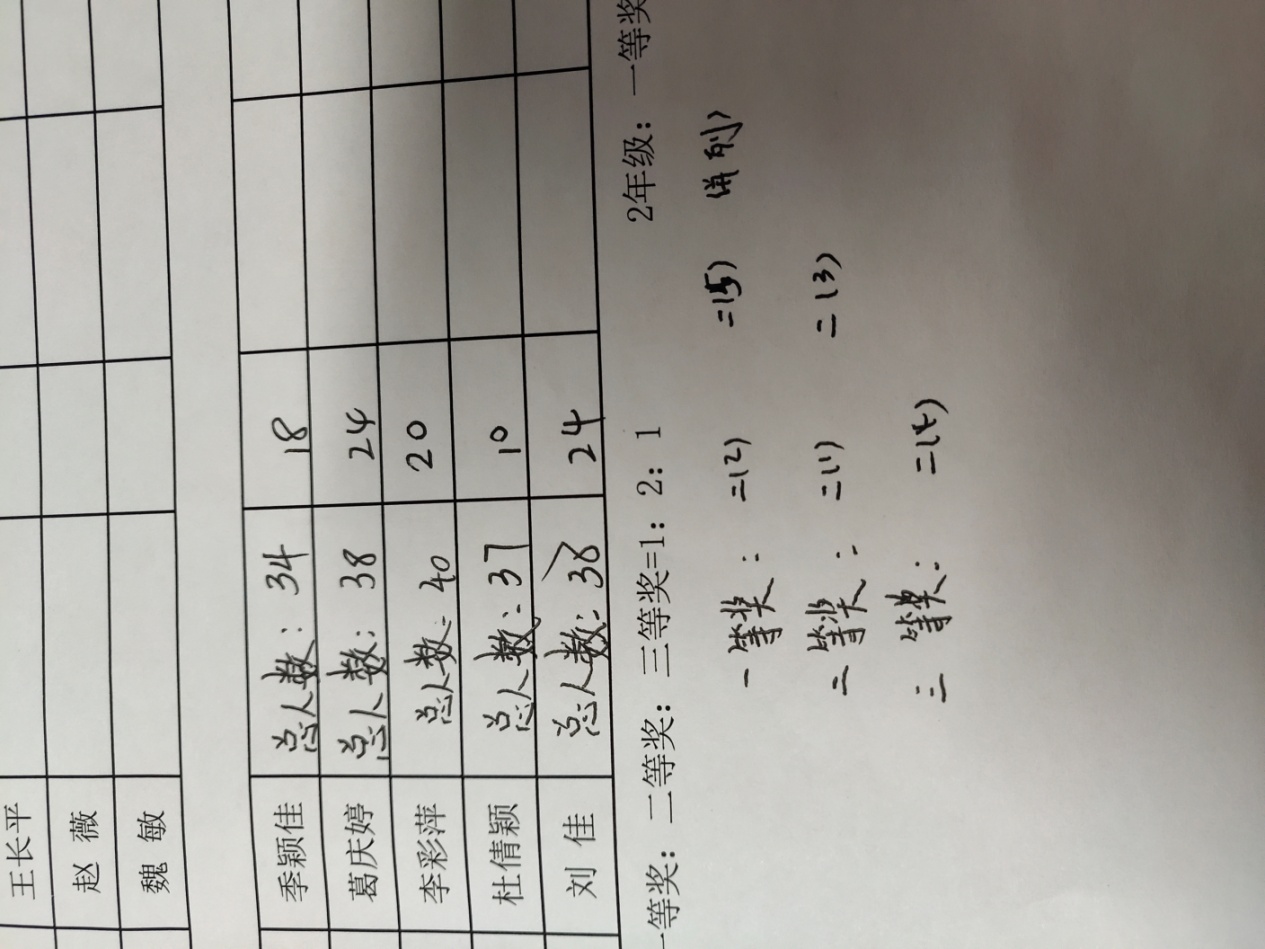 王长平
赵 薇
魏 敏
季颖佳 总人数：34 18
葛庆婷 总人数：38 24
李彩萍 总人数：40 20
杜倩颖 总人数：37 10
刘 佳 总人数：38 24
一等奖：二等奖：三等奖=1：2：1 2年级：一等奖
一等奖：二(2) 二(5) 并列
二等奖：二(1) 二(3)
三等奖：二(4)